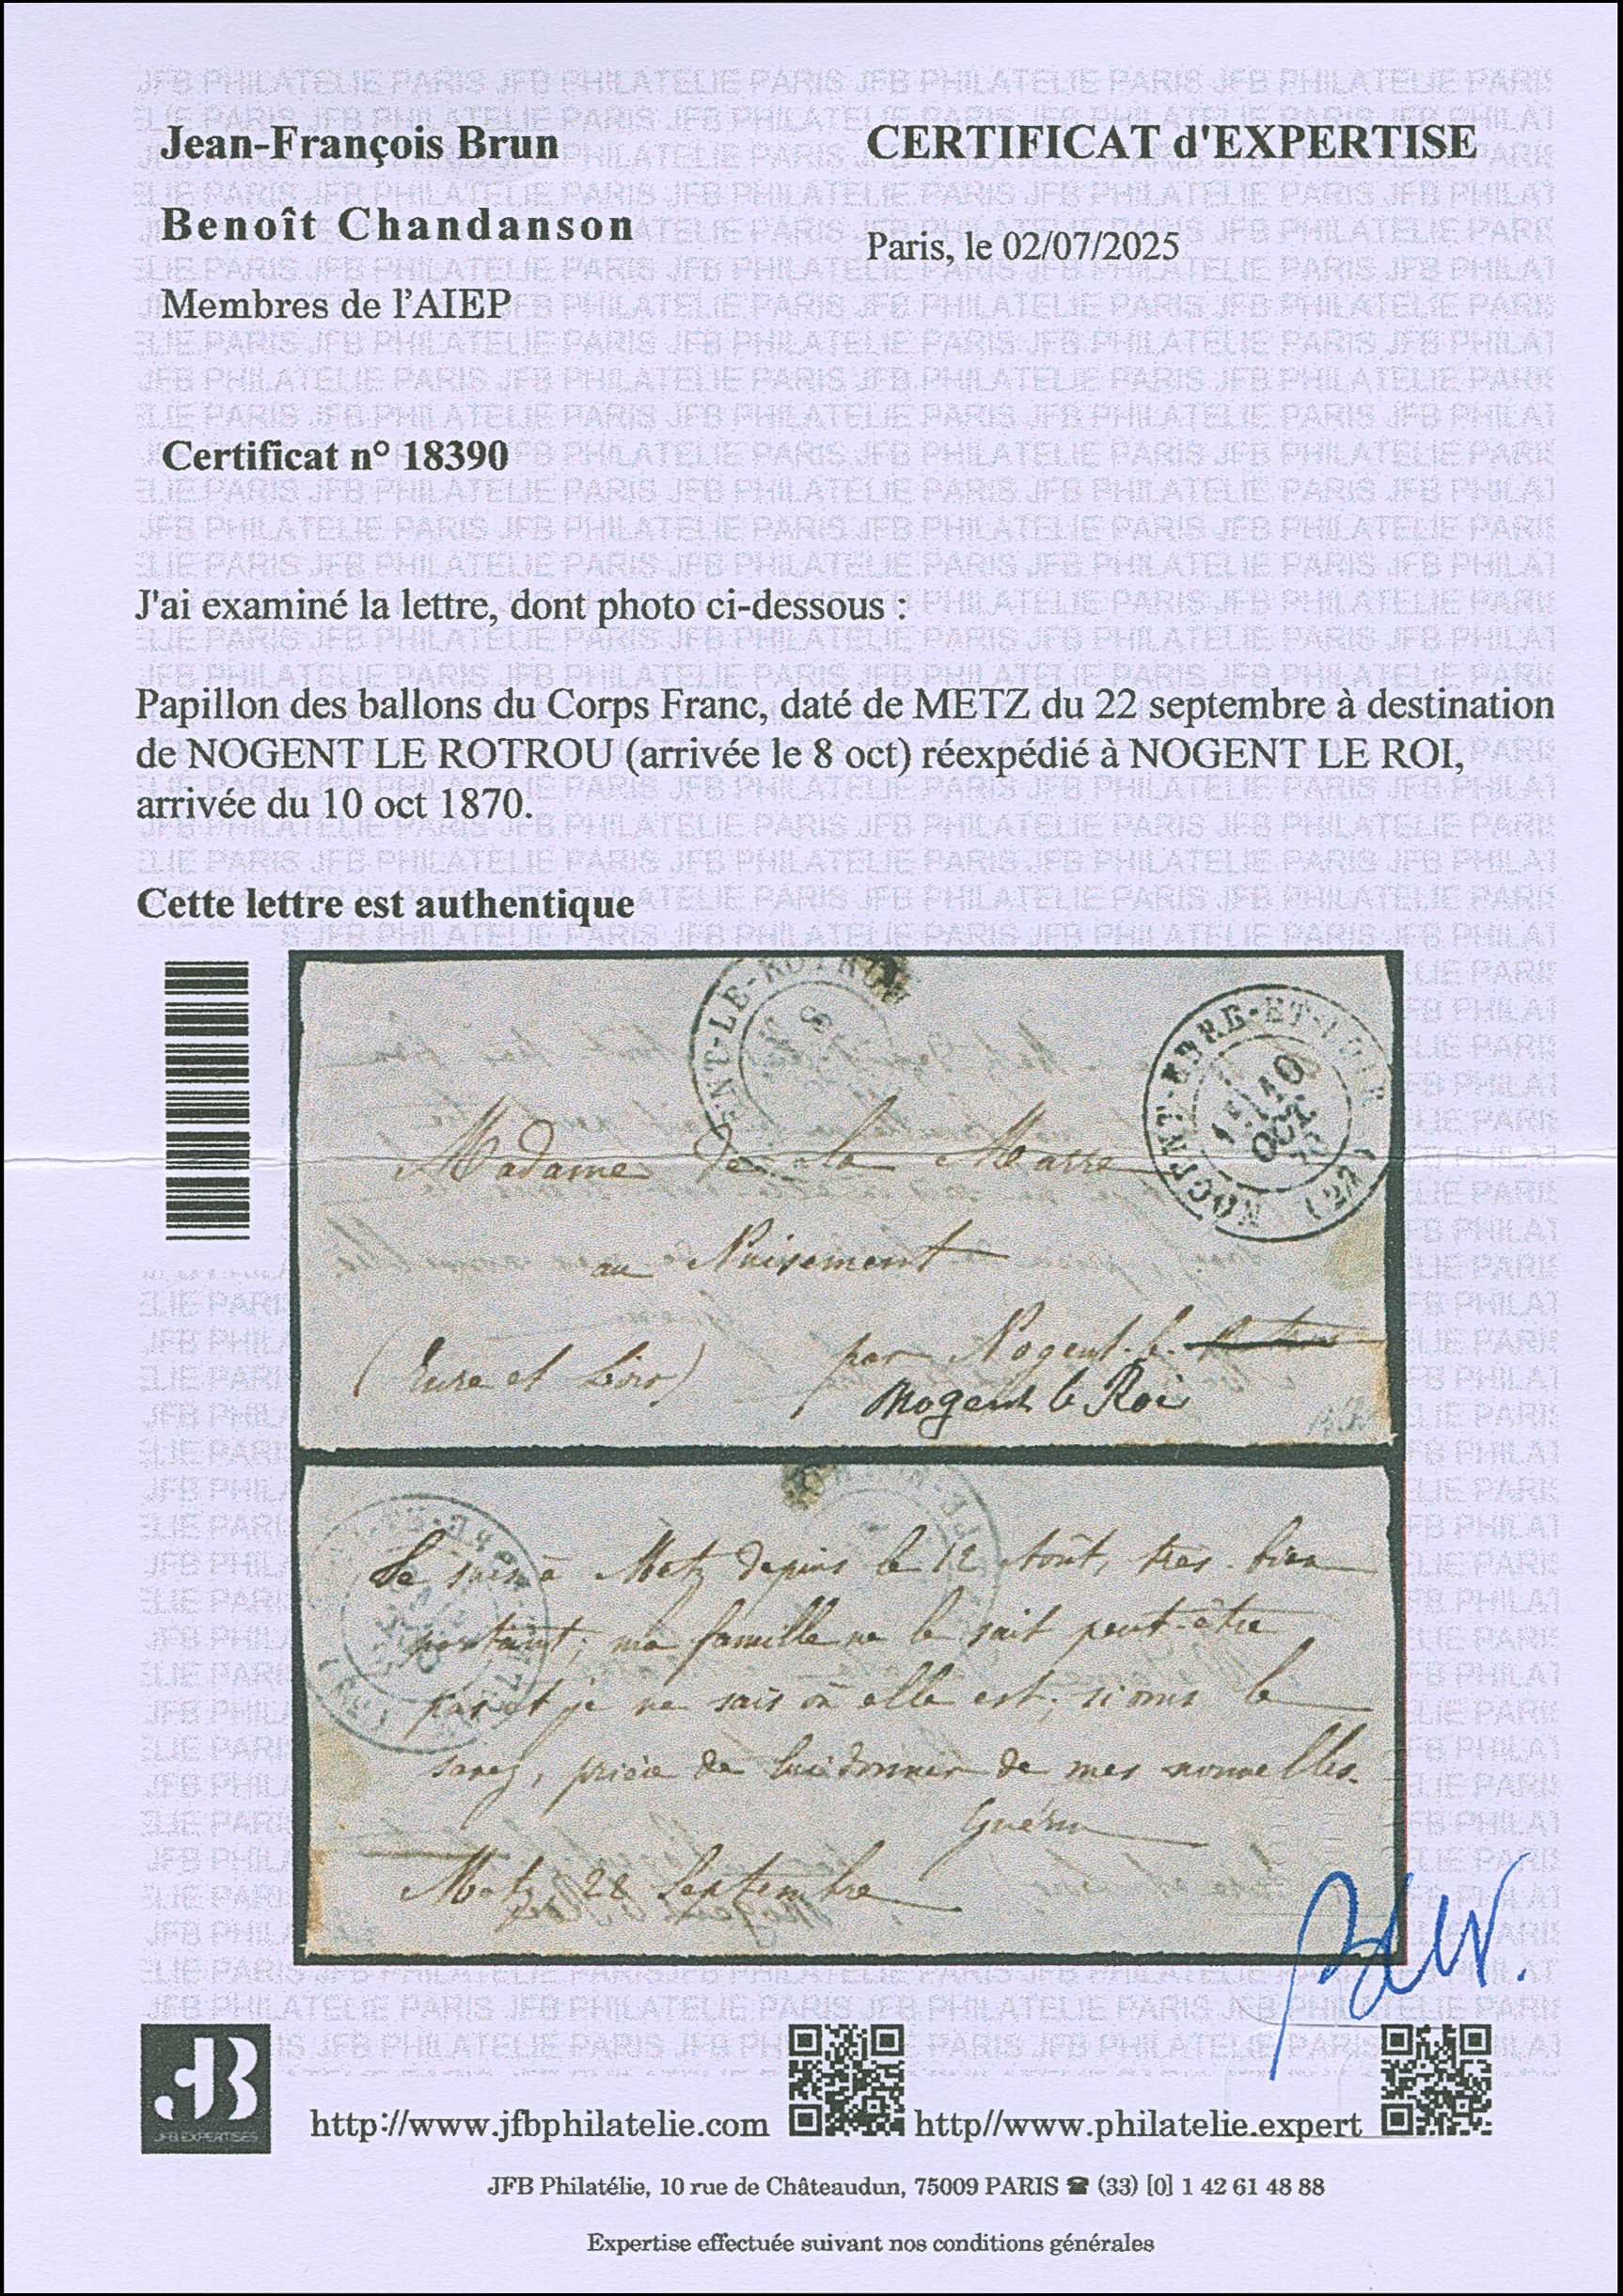 Jean-François Brun
CERTIFICAT d'EXPERTISE
Benoît Chandanson
Paris, le 02/07/2025
Membres de l'AIEP
Certificat n° 18390
J'ai examiné la lettre, dont photo ci-dessous :
Papillon des ballons du Corps Franc, daté de METZ du 22 septembre à destination
de NOGENT LE ROTROU (arrivée le 8 oct) réexpédié à NOGENT LE ROI,
arrivée du 10 oct 1870.
Cette lettre est authentique
ENT-LE-ROTROU
8
NOGENT-EURE-ET-LOIR
1E/10
OCT
(27)
Madame de la Marre
au Nuisement
(Eure et Loir) par Nogent-le-
Nogent le Roi
Je suis à Metz depuis le 12 Août, très-bien
portant; ma famille ne le sait peut-être
pas et je ne sais où elle est; si vous le
savez, prière de lui donner de mes nouvelles.
Guérin
Metz, 22 Septembre
JFB EXPERTISES
http://www.jfbphilatelie.com
http//www.philatelie.expert
JFB Philatélie, 10 rue de Châteaudun, 75009 PARIS ☎ (33) [0] 1 42 61 48 88
Expertise effectuée suivant nos conditions générales